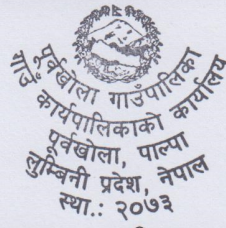 पूर्वखोला गाउँपालिका
गाउँ कार्यपालिकाको कार्यालय
पूर्वखोला, पाल्पा
लुम्बिनी प्रदेश, नेपाल
स्था.: २०७३